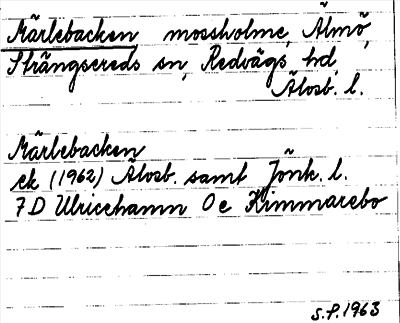 Märlebacken mossholme, Älmö,
Strängsereds sn, Redvägs hd,
Älvsb. l.
Märlebacken
ek (1962) Älvsb. samt Jönk. l.
7D Ulricehamn 0e Kimmarebo
S.P. 1963